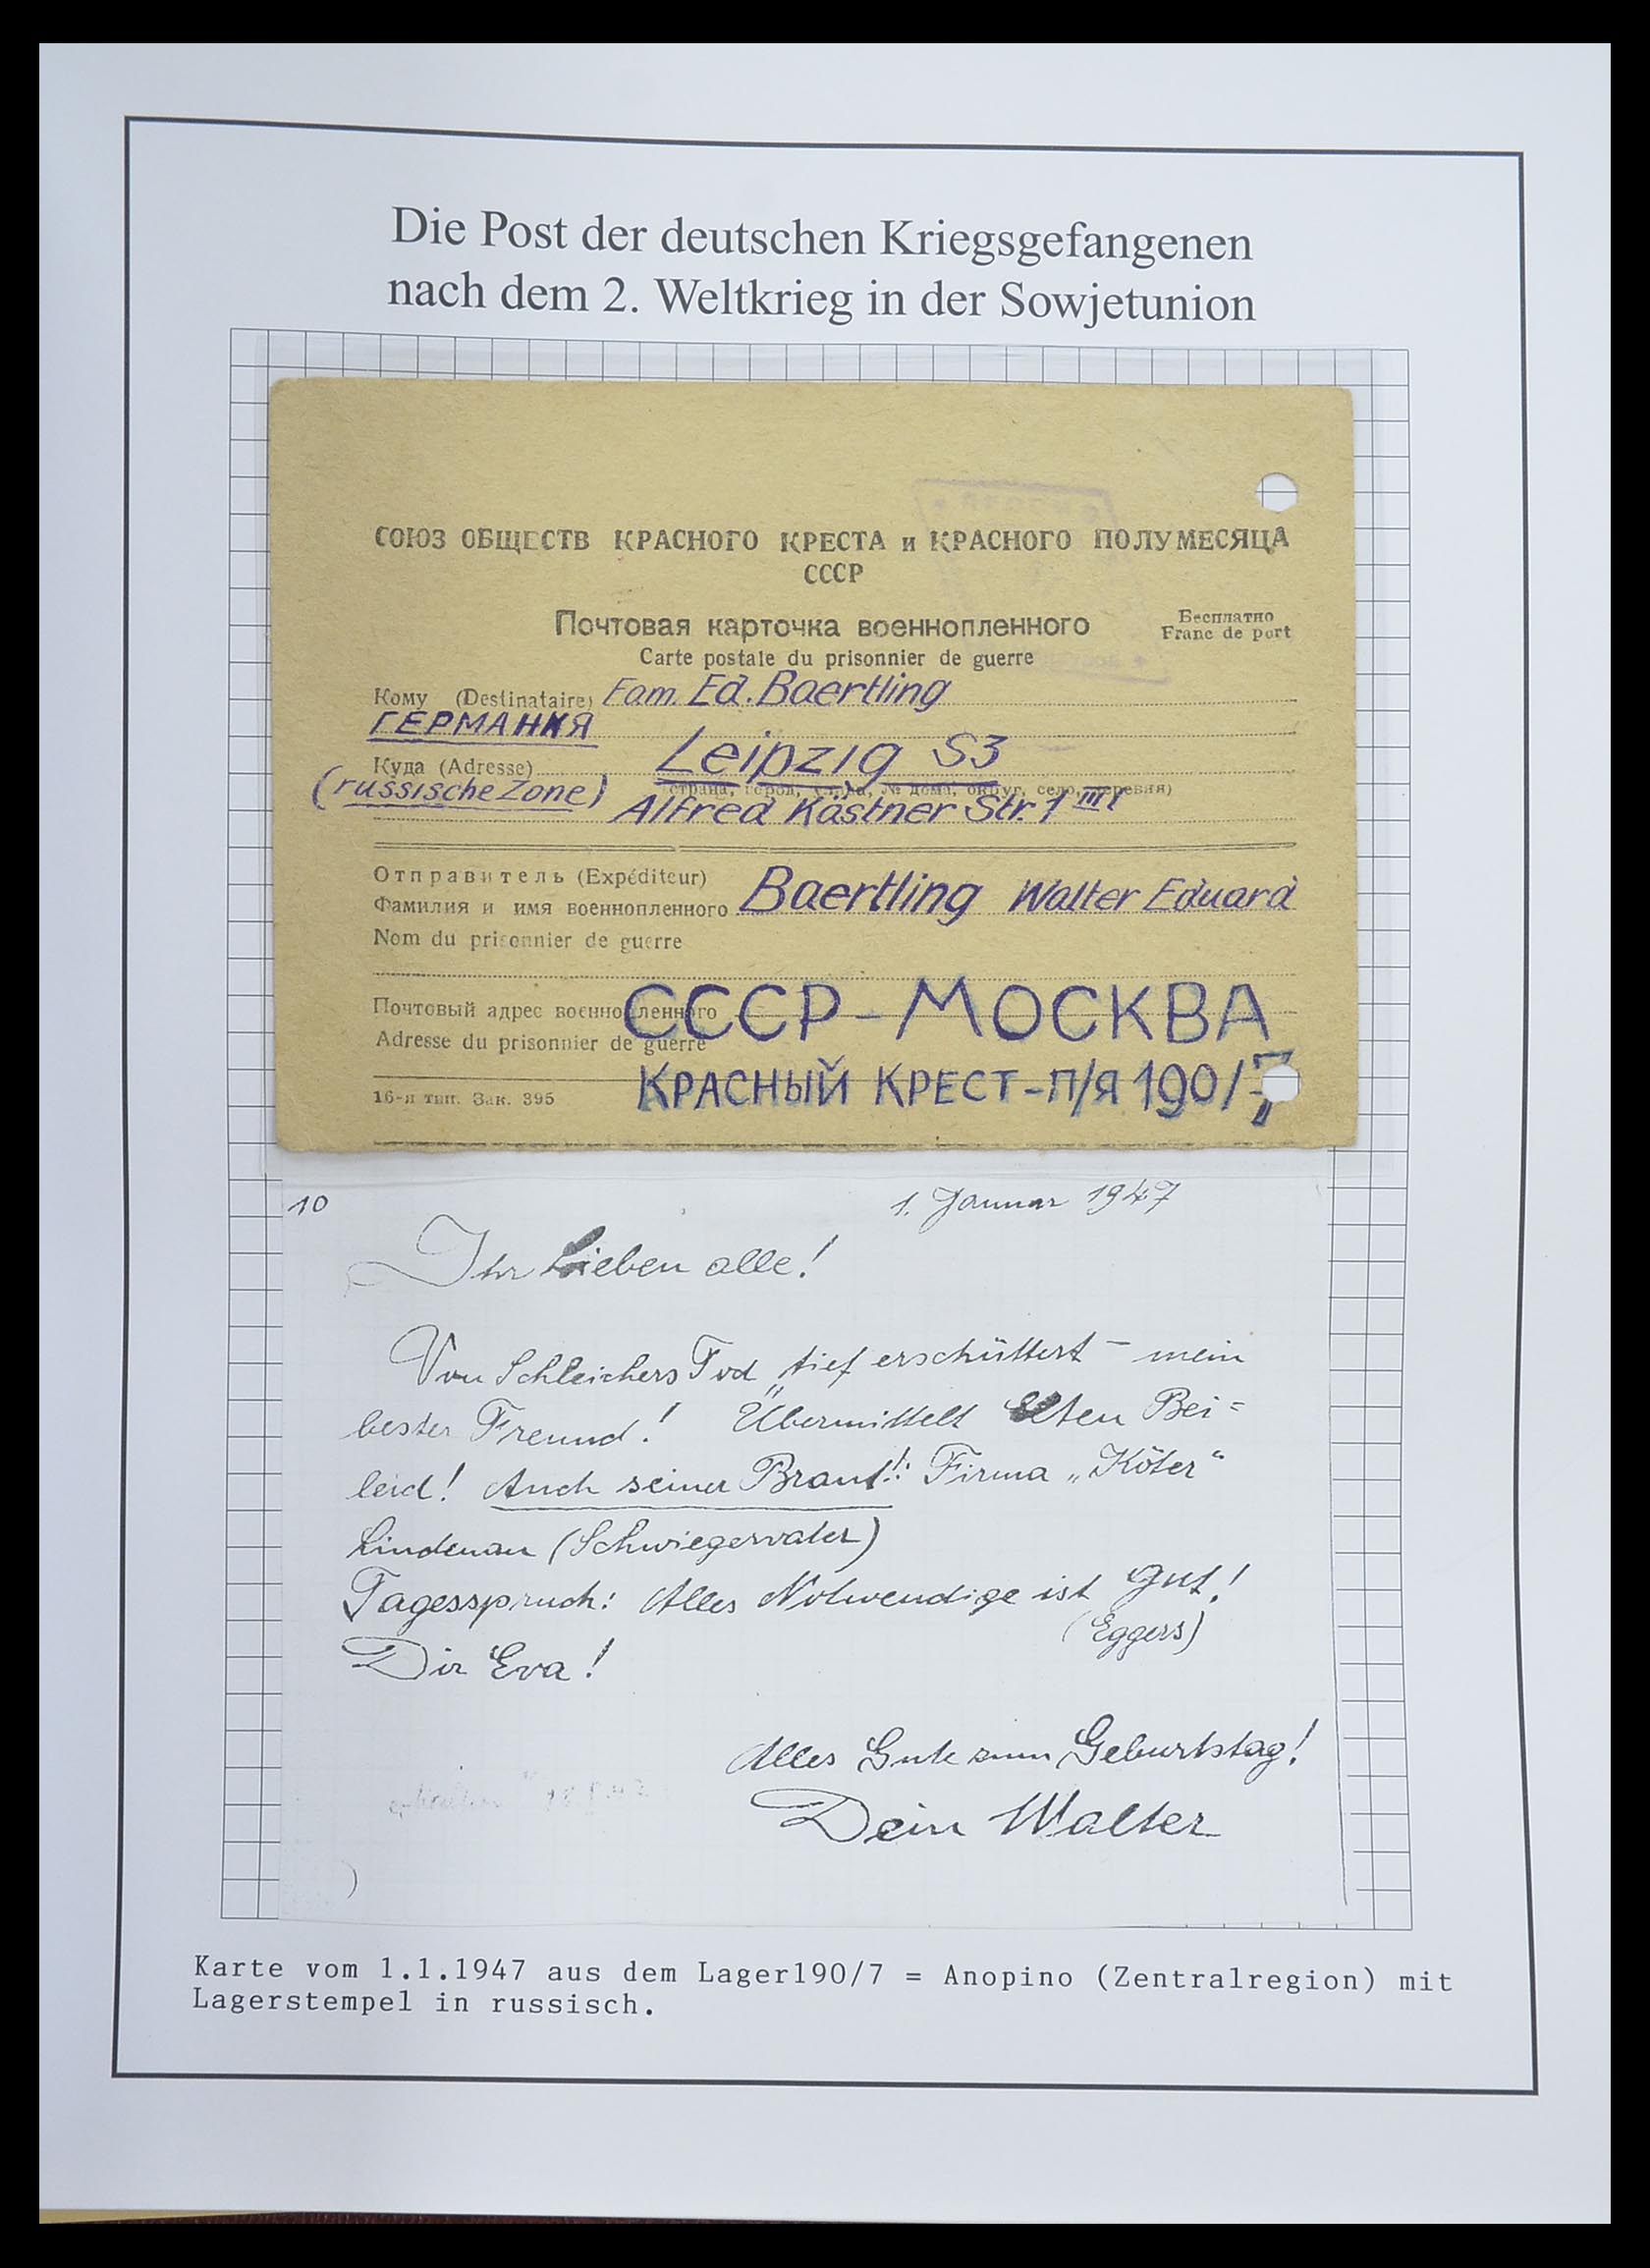 Die Post der deutschen Kriegsgefangenen
nach dem 2. Weltkrieg in der Sowjetunion
СОЮЗ ОБЩЕСТВ КРАСНОГО КРЕСТА и КРАСНОГО ПОЛУМЕСЯЦА
СССР
Почтовая карточка военнопленного
Бесплатно
Franc de port
Carte postale du prisonnier de guerre
Кому (Destinataire) Fam. Ed. Baertling
ГЕРМАНИЯ
Leipzig S3
Куда (Adresse)
(страна, город, улица, № дома, округ, село, деревня)
(russische Zone)
Alfred Kästner Str. 1 III l
Отправитель (Expéditeur)
Фамилия и имя военнопленного Baertling Walter Eduard
Nom du prisonnier de guerre
Почтовый адрес военнопленного СССР-МОСКВА
Adresse du prisonnier de guerre
КРАСНЫЙ КРЕСТ-П/Я 190/7
16-я тип. Зак. 395
10
1. Januar 1947
Ihr Lieben alle!
Von Schleichers Tod tief erschüttert – mein
bester Freund! Übermittelt Elten Bei=
leid! Auch seiner Braut!! Firma „Köter“
Lindenau (Schwiegervater)
Tagesspruch: Alles Notwendige ist gut!
(Eggers)
Dir Eva!
Alles Gute zum Geburtstag!
Dein Walter
Karte vom 1.1.1947 aus dem Lager190/7 = Anopino (Zentralregion) mit
Lagerstempel in russisch.